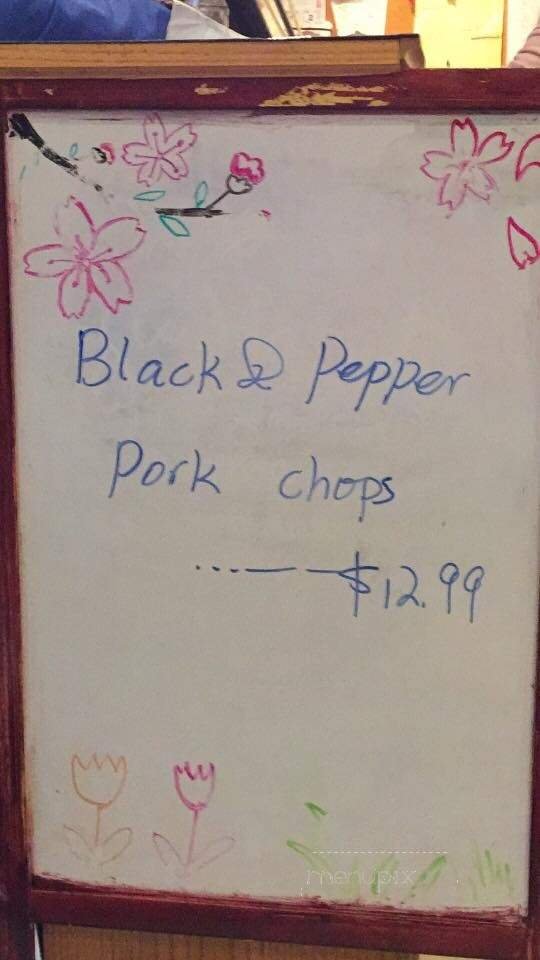 Black & Pepper
Pork chops
...—— $12.99
menupix